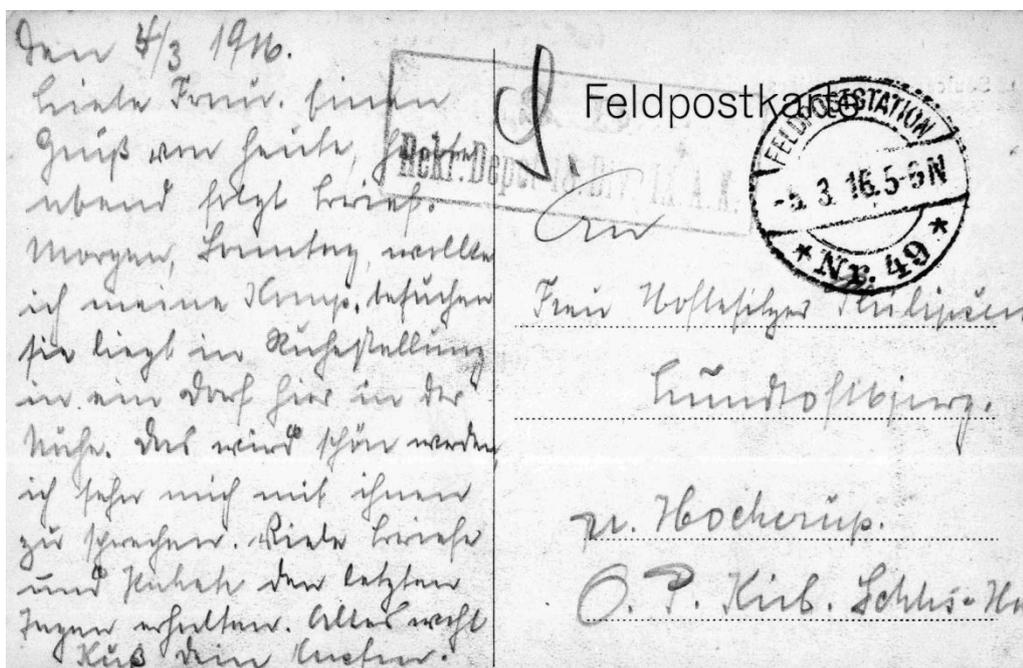 den 4/3 1916.
Liebe Frau. Einen
Gruß von heute, heute
abend folgt Brief.
Morgen, Sonntag, wollte
ich meine Komp. besuchen
sie liegt in Ruhestellung
in ein Dorf hier in der
Nähe. Das wird schön werden,
ich sehn mich mit ihnen
zu sprechen. Viele Briefe
und Pakete den letzten
Tagen erhalten. Alles wohl
Kuß dein
Feldpostkarte
Rekr. Depot 18. Div. IX. A.K.
FELDPOSTSTATION
-5.3.16.5-6N
* Nr. 49 *
An
Frau Hofbesitzer
Lundtoftbjerg.
pr. Hockerup.
O. P. Kieb. Schls-Ho